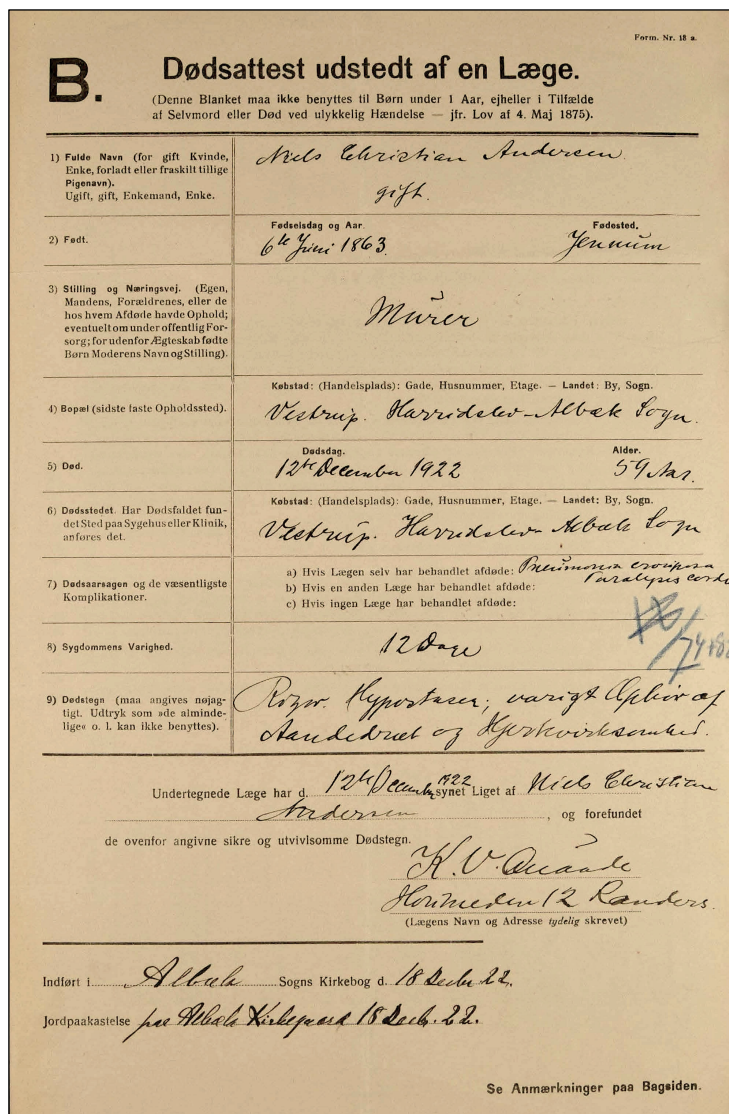 Form. Nr. 18 a.
B.
Dødsattest udstedt af en Læge.
(Denne Blanket maa ikke benyttes til Børn under 1 Aar, ejheller i Tilfælde
af Selvmord eller Død ved ulykkelig Hændelse — jfr. Lov af 4. Maj 1875).
1) Fulde Navn (for gift Kvinde,
Enke, forladt eller fraskilt tillige
Pigenavn).
Ugift, gift, Enkemand, Enke.
Niels Christian Andersen.
gift.
2) Født.
Fødselsdag og Aar.
6te Juni 1863.
Fødested.
Jennum
3) Stilling og Næringsvej. (Egen,
Mandens, Forældrenes, eller de
hos hvem Afdøde havde Ophold;
eventuelt om under offentlig For-
sorg; for udenfor Ægteskab fødte
Børn Moderens Navn og Stilling).
Murer
4) Bopæl (sidste faste Opholdssted).
Købstad: (Handelsplads): Gade, Husnummer, Etage. — Landet: By, Sogn.
Vestrup. Harridslev-Albæk Sogn.
5) Død.
Dødsdag.
12te December 1922
Alder.
59 Aar.
6) Dødsstedet. Har Dødsfaldet fun-
det Sted paa Sygehus eller Klinik,
anføres det.
Købstad: (Handelsplads): Gade, Husnummer, Etage. — Landet: By, Sogn.
Vestrup. Harridslev-Albæk Sogn
7) Dødsaarsagen og de væsentligste
Komplikationer.
a) Hvis Lægen selv har behandlet afdøde: Pneumonia crouposa
Paralysis cordis
b) Hvis en anden Læge har behandlet afdøde:
c) Hvis ingen Læge har behandlet afdøde:
8) Sygdommens Varighed.
12 Dage
9) Dødstegn (maa angives nøjag-
tigt. Udtryk som »de alminde-
lige« o. l. kan ikke benyttes).
Rigor. Hypostaser; varigt Ophør af
Aandedræt og Hjertevirksomhed.
Undertegnede Læge har d. 12te December 1922 synet Liget af Niels Christian
Andersen, og forefundet
de ovenfor angivne sikre og utvivlsomme Dødstegn.
K. V. Quaade
Houmeden 12 Randers.
(Lægens Navn og Adresse tydelig skrevet)
Indført i Albæk Sogns Kirkebog d. 18 Decbr. 22.
Jordpaakastelse paa Albæk Kirkegaard 18 Decb. 22.
Se Anmærkninger paa Bagsiden.